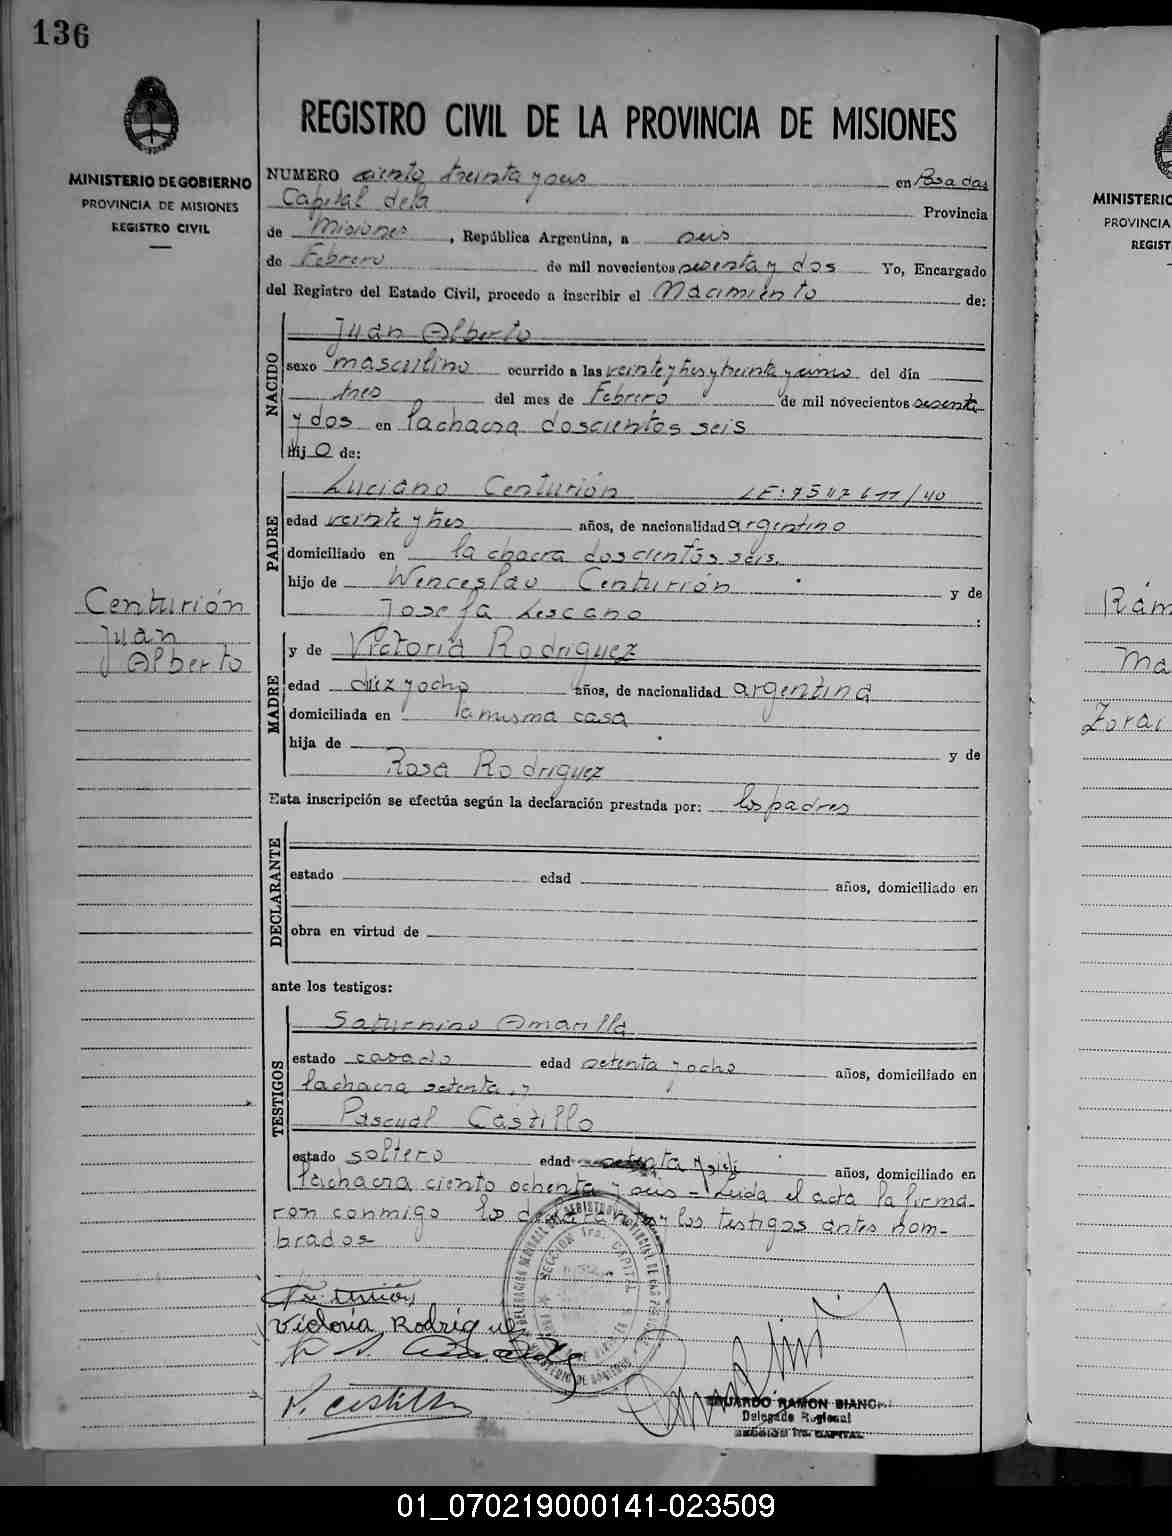 136
MINISTERIO DE GOBIERNO
PROVINCIA DE MISIONES
REGISTRO CIVIL
REGISTRO CIVIL DE LA PROVINCIA DE MISIONES
NUMERO ciento treinta y seis en Posadas
Capital de la Provincia
de Misiones, República Argentina, a seis
de Febrero de mil novecientos sesenta y dos Yo, Encargado
del Registro del Estado Civil, procedo a inscribir el Nacimiento de:
NACIDO
Juan Alberto
sexo masculino ocurrido a las veinte y tres y treinta y cinco del día
tres del mes de Febrero de mil novecientos sesenta
y dos en la chacra doscientos seis
hijo de:
PADRE
Luciano Centurión LE: 7547611/40
edad veinte y tres años, de nacionalidad argentino
domiciliado en la chacra doscientos seis.
hijo de Wenceslao Centurión y de
Josefa Lescano :
Centurión
Juan
Alberto
MADRE
y de Victoria Rodriguez
edad diez y ocho años, de nacionalidad argentina
domiciliada en la misma casa
hija de y de
Rosa Rodriguez
Esta inscripción se efectúa según la declaración prestada por: los padres
DECLARANTE
estado edad años, domiciliado en
obra en virtud de
ante los testigos:
TESTIGOS
Saturnino Amarilla
estado casado edad setenta y ocho años, domiciliado en
la chacra setenta, y
Pascual Castillo
estado soltero edad setenta y años, domiciliado en
la chacra ciento ochenta y seis - Leida el acta la firma-
ron conmigo los declarantes y los testigos antes nom-
brados
Victoria Rodriguez
P. Castillo
EDUARDO RAMON BIANCHI
Delegado Regional
SECCIÓN 1ra. CAPITAL
MINISTERIO
PROVINCIA
REGIST
Rám
Ma
Zorai
01_070219000141-023509